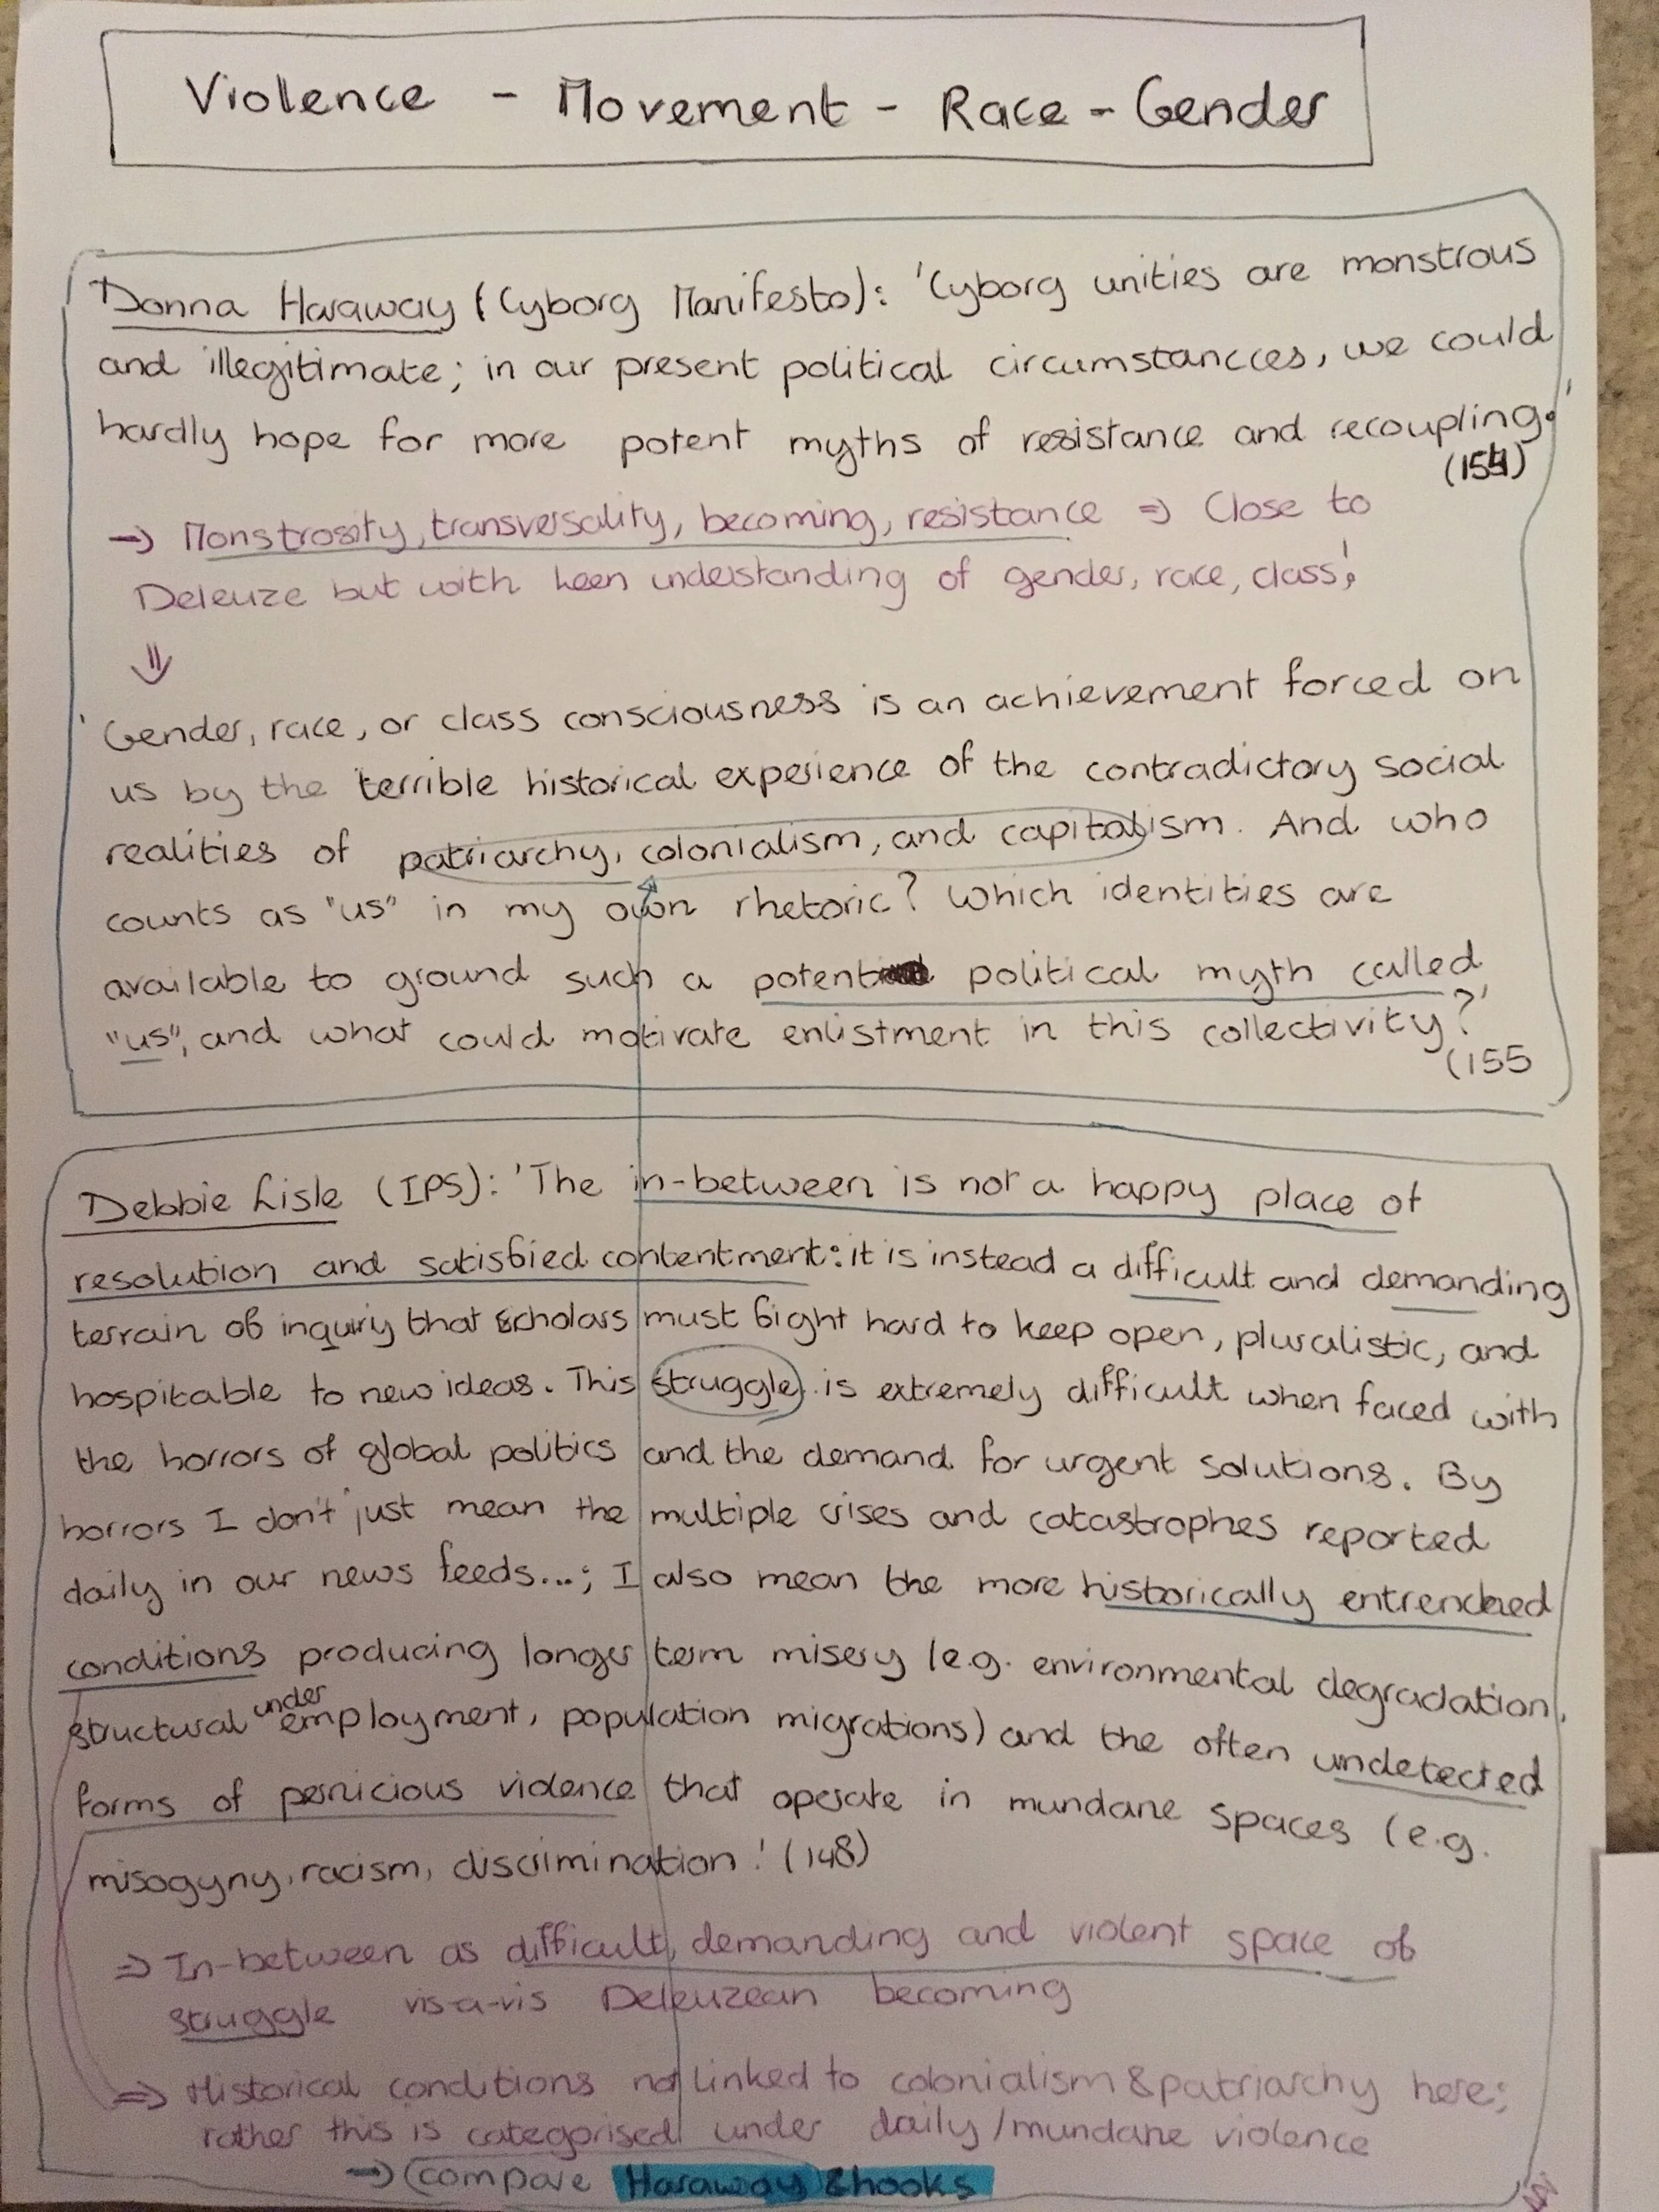 Violence - Movement - Race - Gender
Donna Haraway (Cyborg Manifesto): 'Cyborg unities are monstrous
and illegitimate; in our present political circumstancces, we could
hardly hope for more potent myths of resistance and recoupling.'
(154)
→ Monstrosity, transversality, becoming, resistance ⇒ Close to
Deleuze but with keen understanding of gender, race, class!
⇓
'Gender, race, or class consciousness is an achievement forced on
us by the terrible historical experience of the contradictory social
realities of patriarchy, colonialism, and capitalism. And who
counts as "us" in my own rhetoric? Which identities are
available to ground such a potent political myth called
"us", and what could motivate enlistment in this collectivity?'
(155
Debbie Lisle (IPS): 'The in-between is not a happy place of
resolution and satisfied contentment: it is instead a difficult and demanding
terrain of inquiry that scholars must fight hard to keep open, pluralistic, and
hospitable to new ideas. This struggle is extremely difficult when faced with
the horrors of global politics and the demand for urgent solutions. By
horrors I don't just mean the multiple crises and catastrophes reported
daily in our news feeds...; I also mean the more historically entrenched
conditions producing longer term misery (e.g. environmental degradation,
structural underemployment, population migrations) and the often undetected
forms of pernicious violence that operate in mundane spaces (e.g.
misogyny, racism, discrimination.' (148)
⇒ In-between as difficult, demanding and violent space of
struggle vis-a-vis Deleuzean becoming
⇒ Historical conditions not linked to colonialism & patriarchy here;
rather this is categorised under daily/mundane violence
→ compare Haraway & hooks